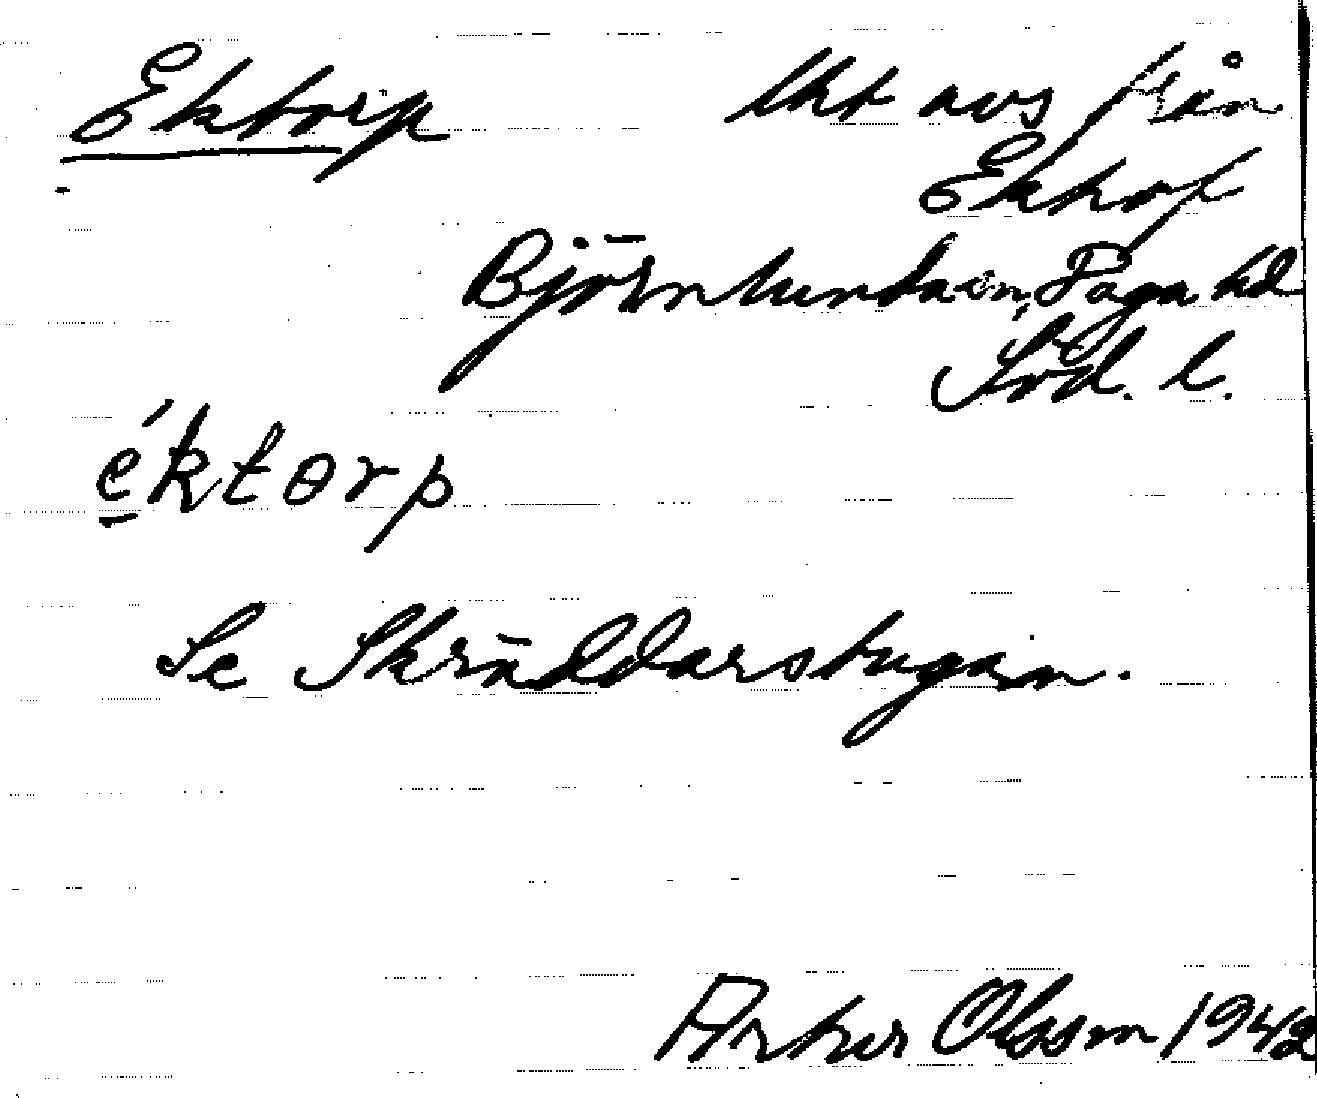 Ektorp lht avs från
Ekhof
Björnlunda sn, Daga hd
Söd. l.
éktorp
Se Skräddarstugan.
Artur Olsson 1942